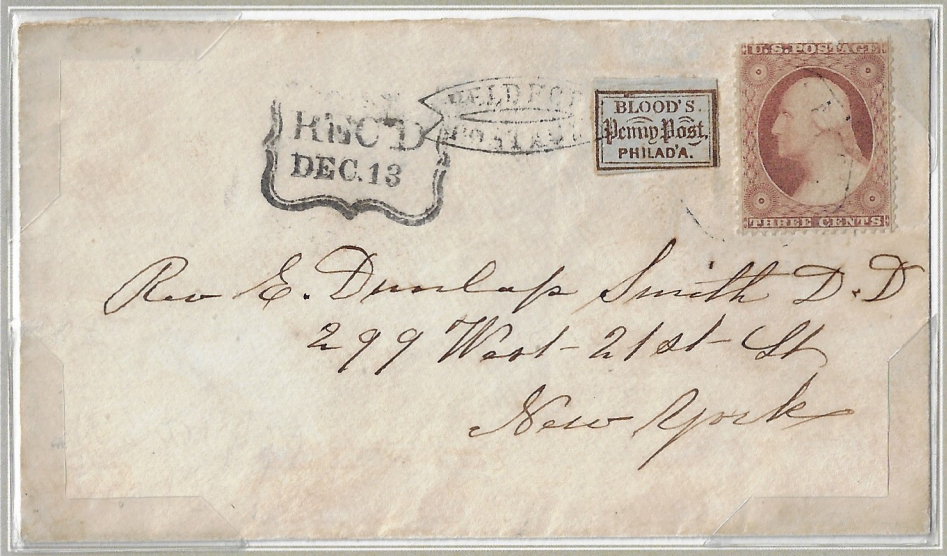 REC'D
DEC. 13
HELD FOR
POSTAGE
BLOOD'S
Penny Post,
PHILAD'A.
U.S. POSTAGE
THREE CENTS
Rev E. Dunlap Smith D.D
299 West 21st St
New York